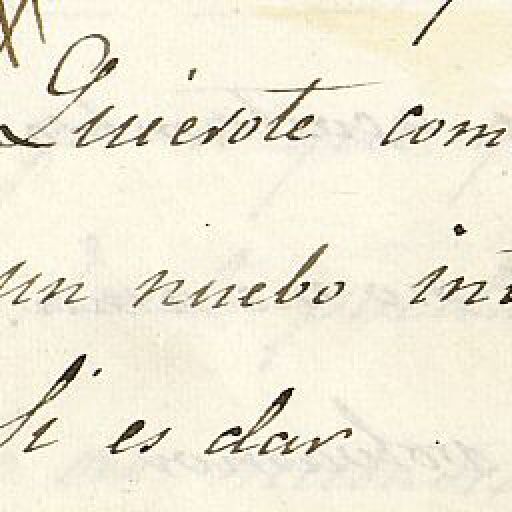 Quierote com
un nuebo int
Si es dar